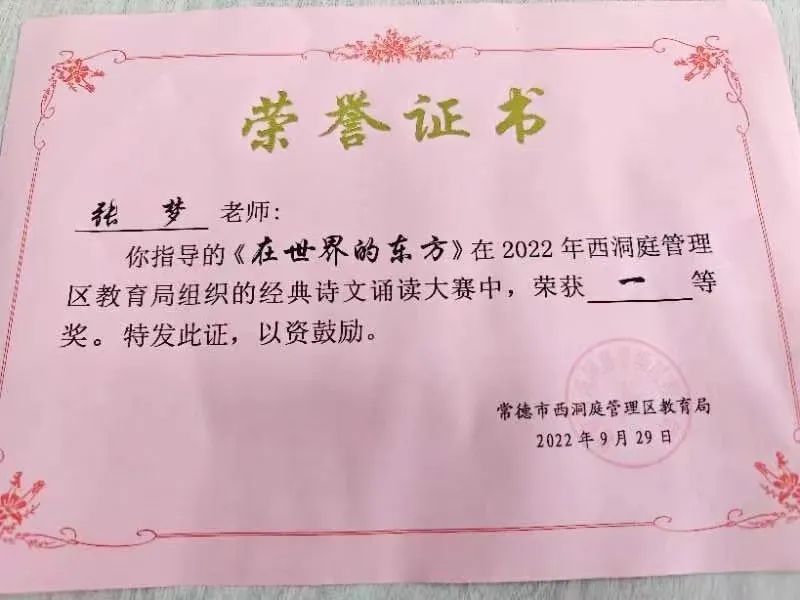 荣誉证书
张 梦 老师:
你指导的《在世界的东方》在2022年西洞庭管理
区教育局组织的经典诗文诵读大赛中，荣获 一 等
奖。特发此证，以资鼓励。
常德市西洞庭管理区教育局
2022年9月29日